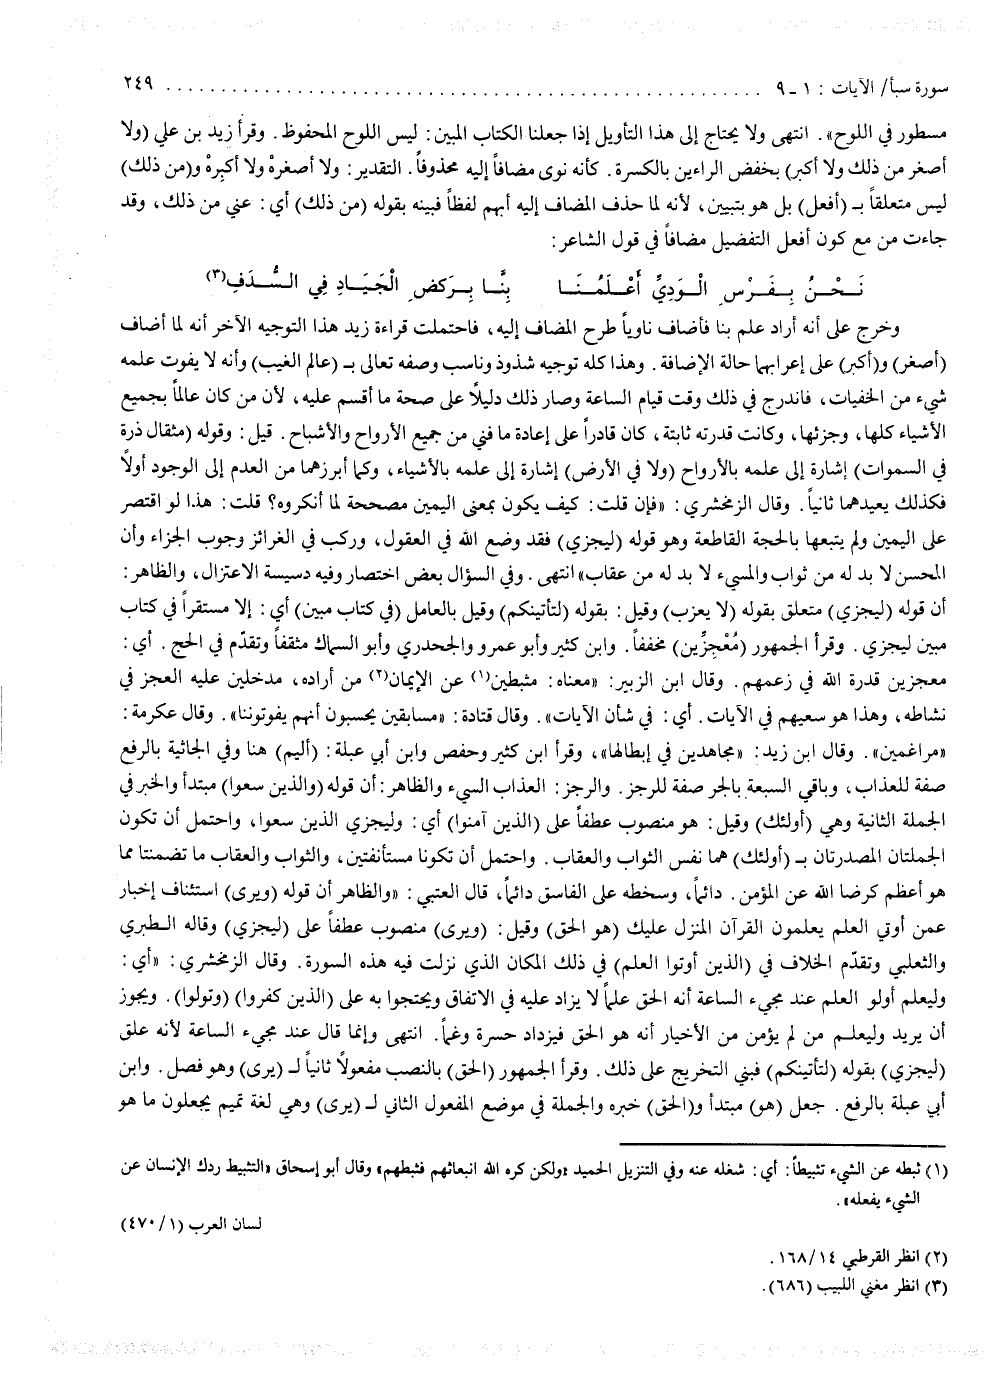 سورة سبأ/ الآيات : ١ ـ ٩ ........................................ ٢٤٩
مسطور في اللوح». انتهى ولا يحتاج إلى هذا التأويل إذا جعلنا الكتاب المبين: ليس اللوح المحفوظ. وقرأ زيد بن علي (ولا
أصغر من ذلك ولا أكبر) بخفض الراءين بالكسرة. كأنه نوى مضافاً إليه محذوفاً. التقدير: ولا أصغرهْ ولا أكبرهْ و(من ذلك)
ليس متعلقاً بـ (أفعل) بل هو بتبيين، لأنه لما حذف المضاف إليه أبهم لفظاً فبينه بقوله (من ذلك) أي: عني من ذلك، وقد
جاءت من مع كون أفعل التفضيل مضافاً في قول الشاعر:
نَحْنُ بِغَرْسِ الْوَدِيِّ أَعْلَمُنَا بِنَّا بِرَكضِ الْجَيَادِ فِي السُّدَفِ(٣)
وخرج على أنه أراد علم بنا فأضاف ناوياً طرح المضاف إليه، فاحتملت قراءة زيد هذا التوجيه الآخر أنه لما أضاف
(أصغر) و(أكبر) على إعرابهما حالة الإضافة. وهذا كله توجيه شذوذ وناسب وصفه تعالى بـ (عالم الغيب) وأنه لا يفوت علمه
شيء من الخفيات، فاندرج في ذلك وقت قيام الساعة وصار ذلك دليلاً على صحة ما أقسم عليه، لأن من كان عالماً بجميع
الأشياء كلها، وجزئها، وكانت قدرته ثابتة، كان قادراً على إعادة ما فني من جميع الأرواح والأشباح. قيل: وقوله (مثقال ذرة
في السموات) إشارة إلى علمه بالأرواح (ولا في الأرض) إشارة إلى علمه بالأشياء، وكما أبرزهما من العدم إلى الوجود أولاً
فكذلك يعيدهما ثانياً. وقال الزمخشري: «فإن قلت: كيف يكون بمعنى اليمين مصححة لما أنكروه؟ قلت: هذا لو اقتصر
على اليمين ولم يتبعها بالحجة القاطعة وهو قوله (ليجزي) فقد وضع الله في العقول، وركب في الغرائز وجوب الجزاء وأن
المحسن لا بد له من ثواب والمسيء لا بد له من عقاب» انتهى. وفي السؤال بعض اختصار وفيه دسيسة الاعتزال، والظاهر:
أن قوله (ليجزي) متعلق بقوله (لا يعزب) وقيل: بقوله (لتأتينكم) وقيل بالعامل (في كتاب مبين) أي: إلا مستقراً في كتاب
مبين ليجزي. وقرأ الجمهور (مُعْجِزِّين) مخففاً. وابن كثير وأبو عمرو والجحدري وأبو السماك مثقفاً وتقدّم في الحج. أي:
معجزين قدرة الله في زعمهم. وقال ابن الزبير: «معناه: مثبطين(١) عن الإيمان(٢) من أراده، مدخلين عليه العجز في
نشاطه، وهذا هو سعيهم في الآيات. أي: في شأن الآيات». وقال قتادة: «مسابقين يحسبون أنهم يفوتوننا». وقال عكرمة:
«مراغمين». وقال ابن زيد: «مجاهدين في إبطالها»، وقرأ ابن كثير وحفص وابن أبي عبلة: (أليم) هنا وفي الجاثية بالرفع
صفة للعذاب، وباقي السبعة بالجر صفة للرجز. والرجز: العذاب السيء والظاهر: أن قوله (والذين سعوا) مبتدأ والخبر في
الجملة الثانية وهي (أولئك) وقيل: هو منصوب عطفاً على (الذين آمنوا) أي: وليجزي الذين سعوا، واحتمل أن تكون
الجملتان المصدرتان بـ (أولئك) هما نفس الثواب والعقاب. واحتمل أن تكونا مستأنفتين، والثواب والعقاب ما تضمنتا مما
هو أعظم كرضا الله عن المؤمن. دائماً، وسخطه على الفاسق دائماً، قال العتبي: «والظاهر أن قوله (ويرى) استئناف إخبار
عمن أوتي العلم يعلمون القرآن المنزل عليك (هو الحق) وقيل: (ويرى) منصوب عطفاً على (ليجزي) وقاله الطبري
والثعلبي وتقدّم الخلاف في (الذين أوتوا العلم) في ذلك المكان الذي نزلت فيه هذه السورة. وقال الزمخشري: «أي:
وليعلم أولو العلم عند مجيء الساعة أنه الحق علماً لا يزاد عليه في الاتفاق ويحتجوا به على (الذين كفروا) (وتولوا). ويجوز
أن يريد وليعلم من لم يؤمن من الأخيار أنه هو الحق فيزداد حسرة وغماً. انتهى وإنما قال عند مجيء الساعة لأنه علق
(ليجزي) بقوله (لتأتينكم) فبني التخريج على ذلك. وقرأ الجمهور (الحق) بالنصب مفعولاً ثانياً لـ (يرى) وهو فصل. وابن
أبي عبلة بالرفع. جعل (هو) مبتدأ و(الحق) خبره والجملة في موضع المفعول الثاني لـ (يرى) وهي لغة تميم يجعلون ما هو
(١) ثبطه عن الشيء تثبيطاً: أي: شغله عنه وفي التنزيل الحميد «ولكن كره الله انبعاثهم فثبطهم» وقال أبو إسحاق «التثبيط ردك الإنسان عن
الشيء يفعله».
لسان العرب (١/ ٤٧٠)
(٢) انظر القرطبي ١٤/ ١٦٨.
(٣) انظر مغني اللبيب (٦٨٦).